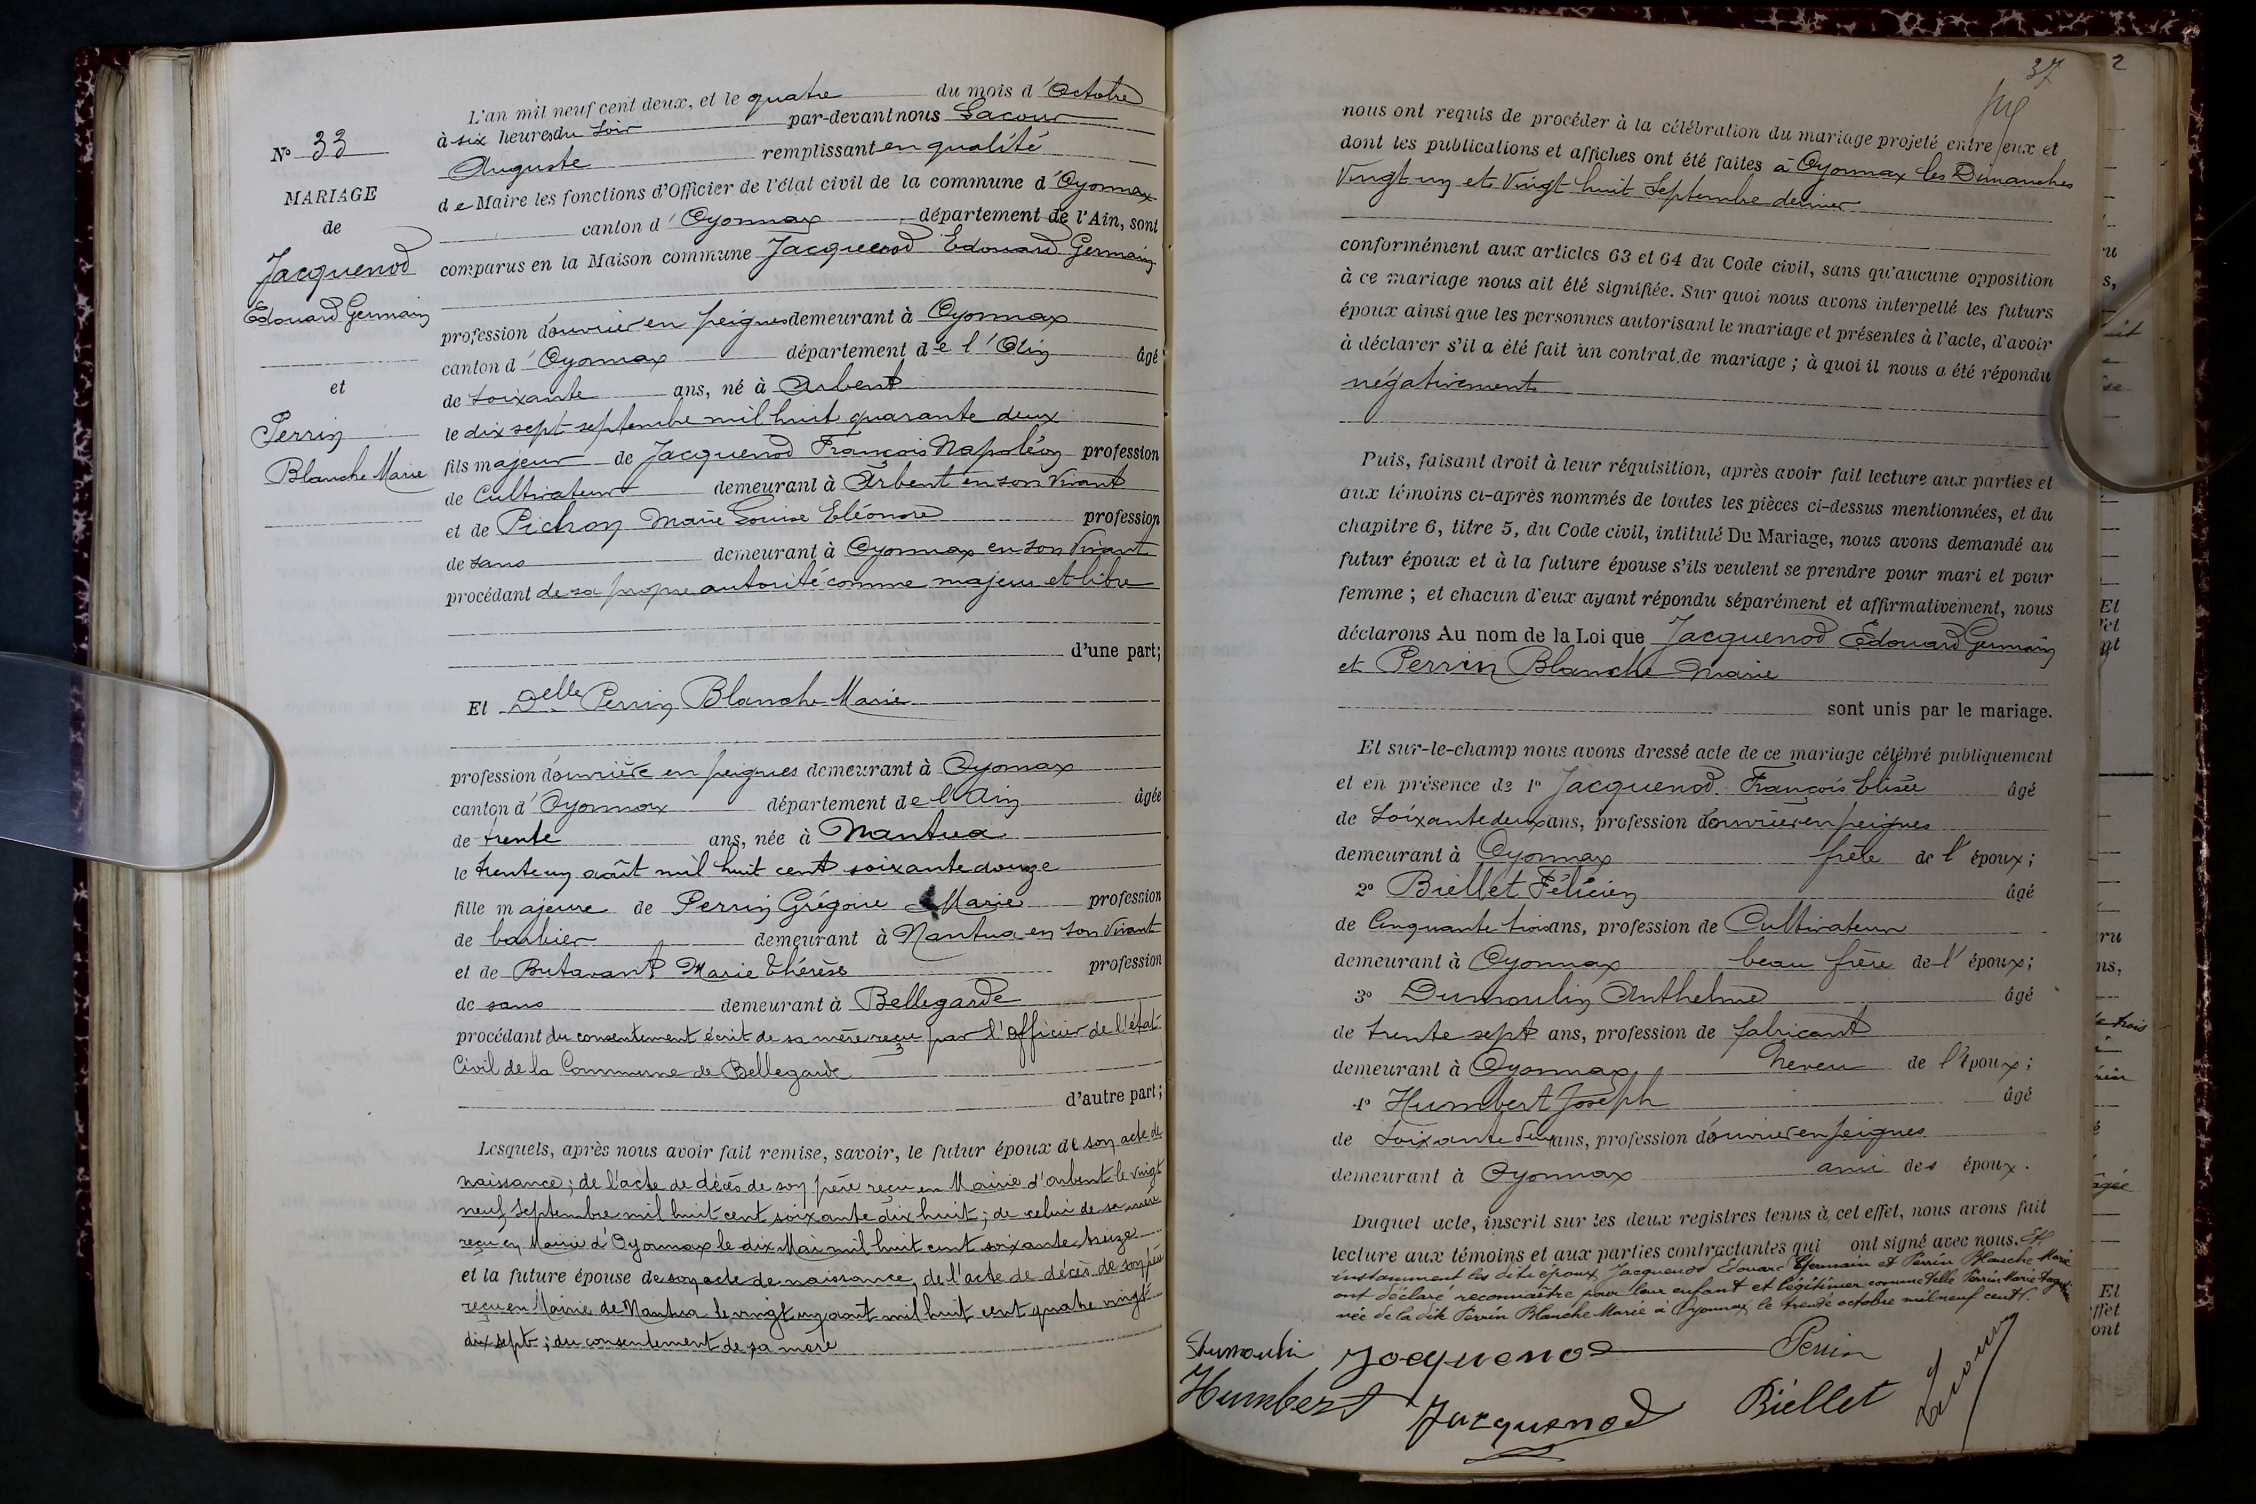 L'an mil neuf cent deux, et le quatre du mois d'Octobre
à six heures du Soir par-devant nous Lacour
Auguste remplissant en qualité
de Maire les fonctions d'Officier de l'état civil de la commune d'Oyonnax
canton d'Oyonnax département de l'Ain, sont
comparus en la Maison commune Jacquenod Edouard Germain
profession d'ouvrier en peignes demeurant à Oyonnax
canton d'Oyonnax département de l'Ain âgé
de soixante ans, né à Arbent
le dix sept septembre mil huit quarante deux
fils majeur de Jacquenod François Napoléon profession
de Cultivateur demeurant à Arbent en son vivant
et de Pichon Marie Louise Eléonore profession
de sans demeurant à Oyonnax en son vivant
procédant de sa propre autorité comme majeur et libre
d'une part;
Et Delle Perrin Blanche Marie
profession d'ouvrière en peignes demeurant à Oyonnax
canton d'Oyonnax département de l'Ain âgée
de trente ans, née à Nantua
le trente un août mil huit cent soixante douze
fille majeure de Perrin Grégoire Marie profession
de barbier demeurant à Nantua en son vivant
et de Butavant Marie Thérèse profession
de sans demeurant à Bellegarde
procédant du consentement écrit de sa mère reçu par l'officier de l'état-
Civil de la Commune de Bellegarde
d'autre part;
Lesquels, après nous avoir fait remise, savoir, le futur époux de son acte de
naissance; de l'acte de décès de son père reçu en Mairie d'Arbent le vingt
neuf Septembre mil huit cent soixante dix huit; de celui de sa mère
reçu en Mairie d'Oyonnax le dix Mai mil huit cent soixante treize
et la future épouse de son acte de naissance, de l'acte de décès de son père
reçu en Mairie de Nantua le vingt un août mil huit cent quatre vingt
dix sept; du consentement de sa mère
No 33
MARIAGE
de
Jacquenod
Edouard Germain
et
Perrin
Blanche Marie
37
nous ont requis de procéder à la célébration du mariage projeté entre eux et
dont les publications et affiches ont été faites à Oyonnax les Dimanches
Vingt un et Vingt huit Septembre dernier
conformément aux articles 63 et 64 du Code civil, sans qu'aucune opposition
à ce mariage nous ait été signifiée. Sur quoi nous avons interpellé les futurs
époux ainsi que les personnes autorisant le mariage et présentes à l'acte, d'avoir
à déclarer s'il a été fait un contrat de mariage; à quoi il nous a été répondu
négativement
Puis, faisant droit à leur réquisition, après avoir fait lecture aux parties et
aux témoins ci-après nommés de toutes les pièces ci-dessus mentionnées, et du
chapitre 6, titre 5, du Code civil, intitulé Du Mariage, nous avons demandé au
futur époux et à la future épouse s'ils veulent se prendre pour mari et pour
femme; et chacun d'eux ayant répondu séparément et affirmativement, nous
déclarons Au nom de la Loi que Jacquenod Edouard Germain
et Perrin Blanche Marie
sont unis par le mariage.
Et sur-le-champ nous avons dressé acte de ce mariage célébré publiquement
et en présence de 1º Jacquenod François Elisée âgé
de Soixante deux ans, profession d'ouvrier en peignes
demeurant à Oyonnax frère de l'époux;
2º Biellet Félicien âgé
de Cinquante trois ans, profession de Cultivateur
demeurant à Oyonnax beau frère de l'époux;
3º Dumoulin Anthelme âgé
de trente sept ans, profession de fabricant
demeurant à Oyonnax neveu de l'époux;
4º Humbert Joseph âgé
de Soixante deux ans, profession d'ouvrier en peignes
demeurant à Oyonnax ami des époux.
Duquel acte, inscrit sur les deux registres tenus à cet effet, nous avons fait
lecture aux témoins et aux parties contractantes qui ont signé avec nous. Et
instamment les dits époux Jacquenod Edouard Germain et Perrin Blanche Marie
ont déclaré reconnaître pour leur enfant et légitimer comme telle Perrin Marie
née de la dite Perrin Blanche Marie à Oyonnax le trente octobre mil neuf cent.
Dumoulin Jacquenod Perrin
Humbert Jacquenod Biellet Lacour